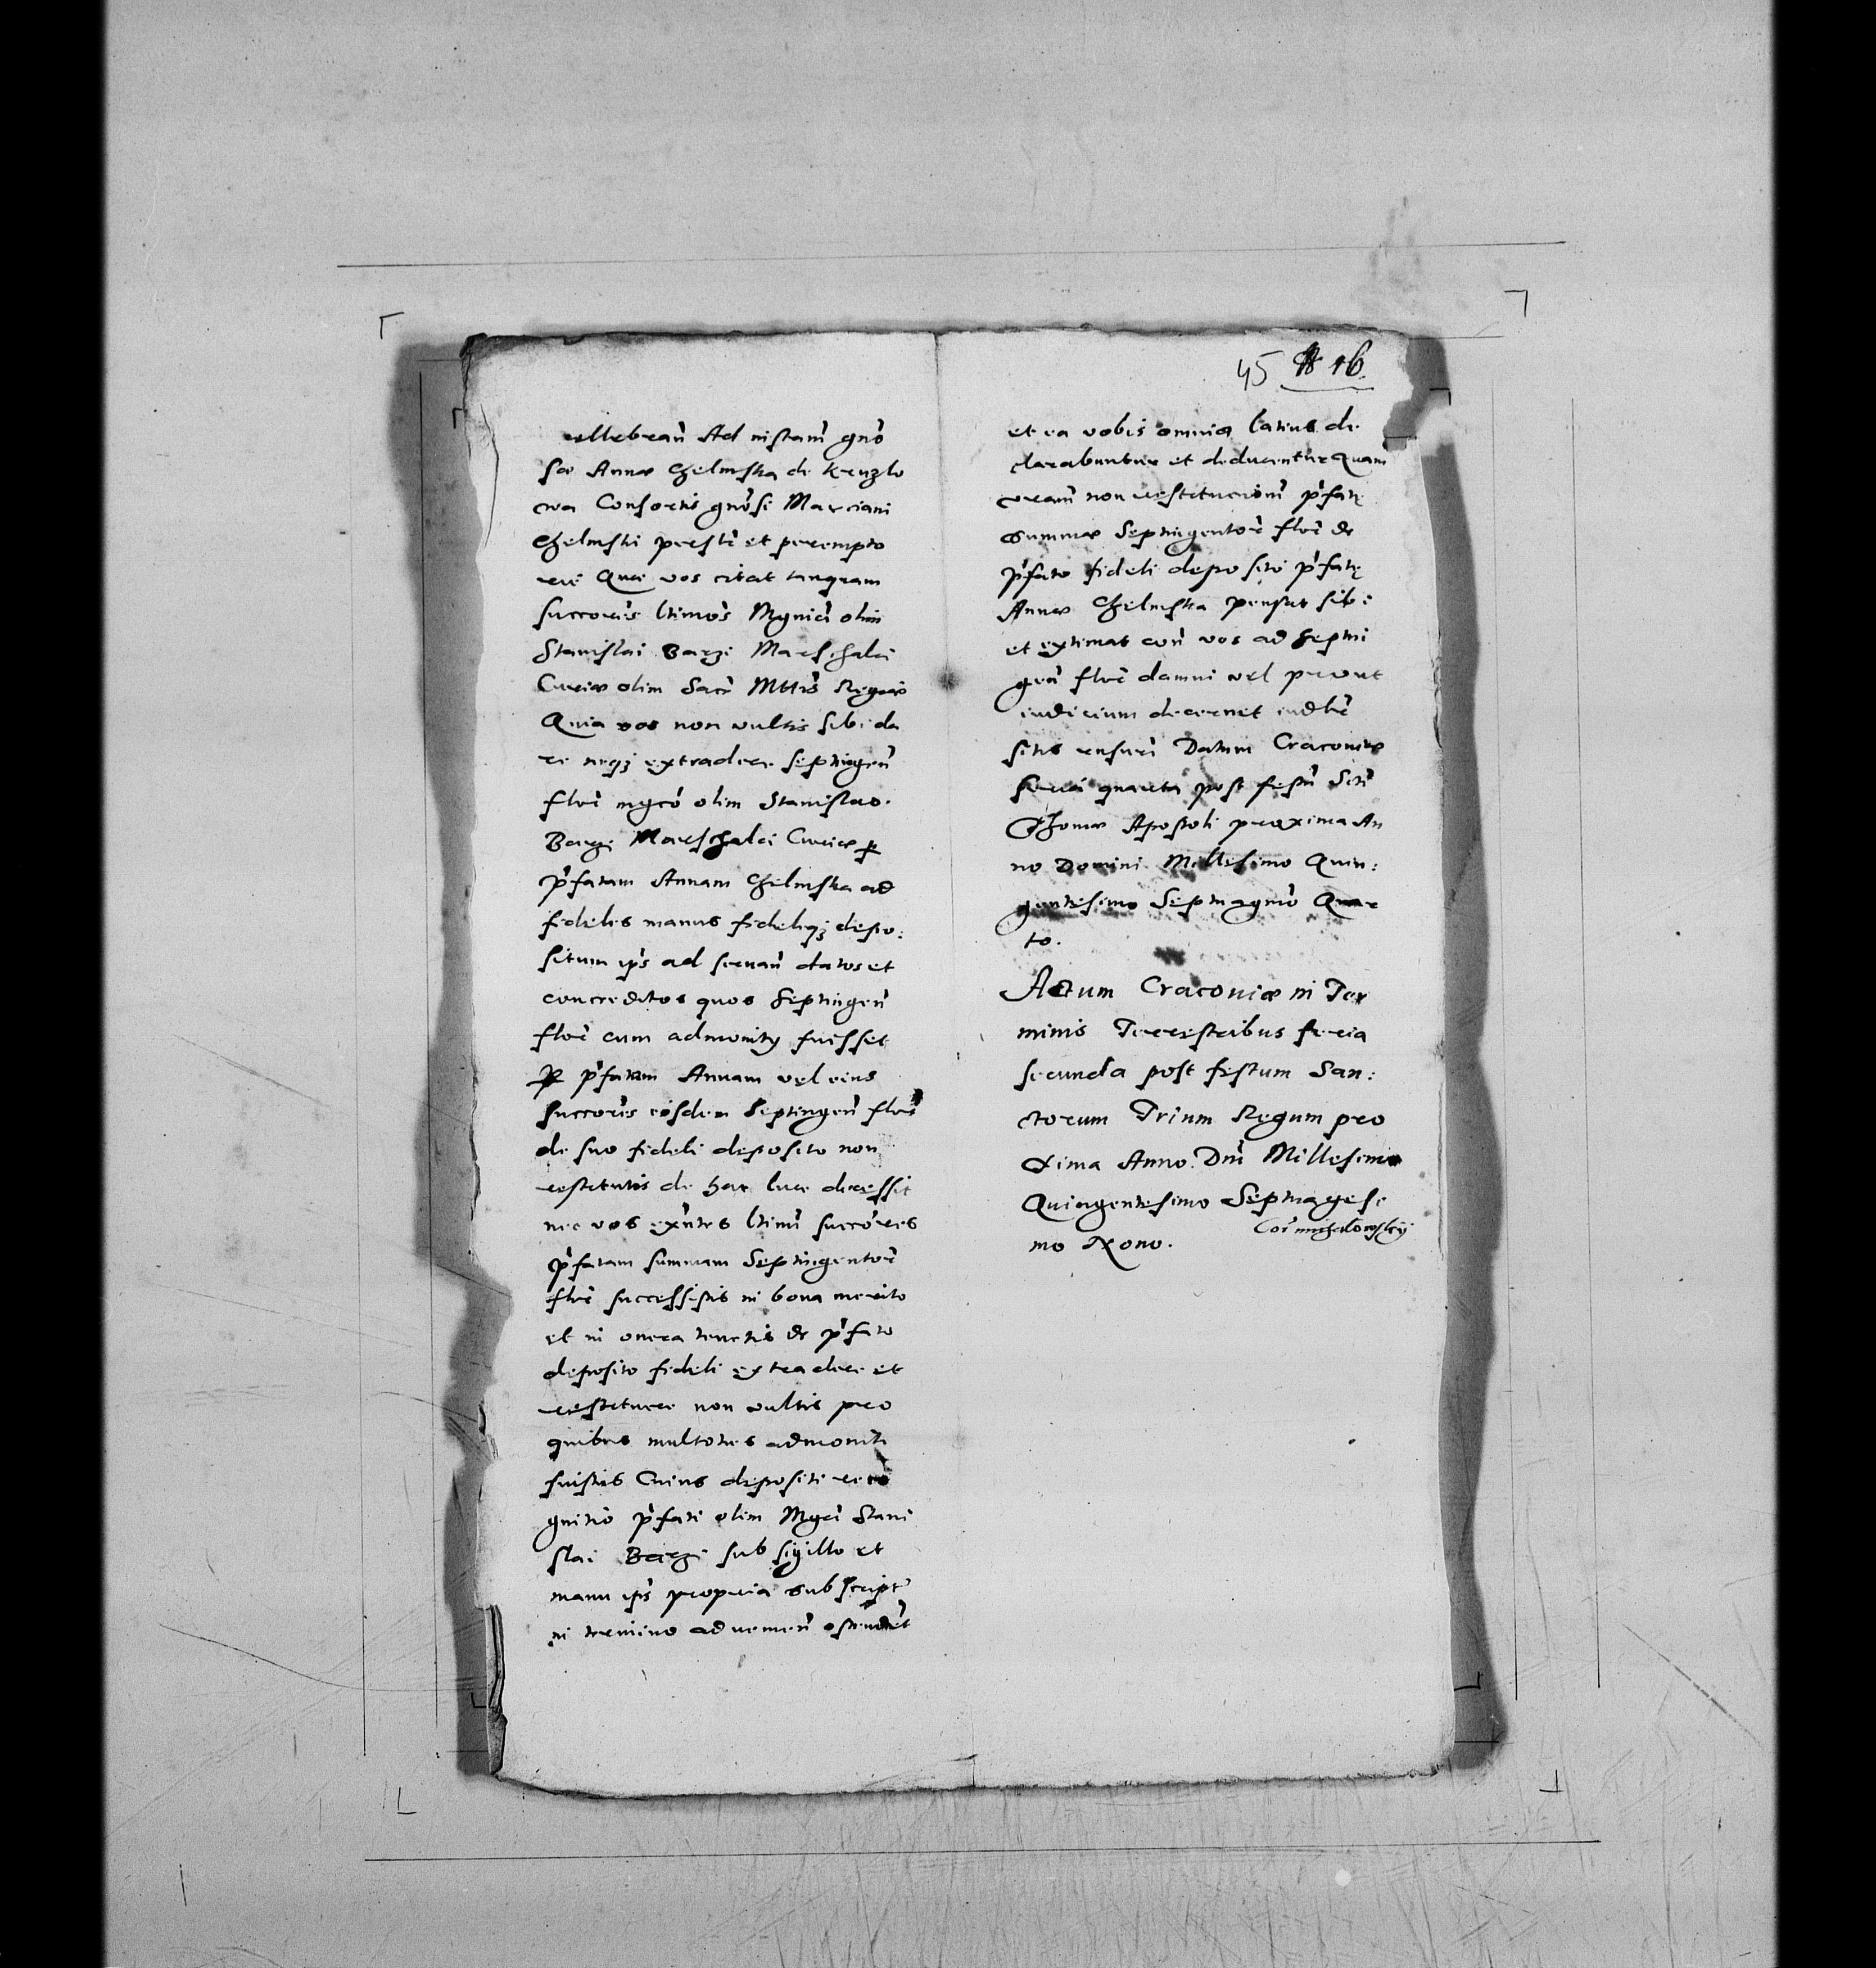 cellebran̄ Ad instan̄ gn̄o
sæ Annæ Chelmska de Kruzlo
wa Consortis gn̄osi Marciani
Chelmski perst̄r et perempto
rie Que vos citat tanquam
succores ltimos Mgnici olim
Stanislai Barzi Marschalci
Curiæ olim Sacr̄ Mttis Regiæ
Quia vos non vultis sibi da
re neqȝ extradere septingen̄
flor̄ mgco olim Stanislao
Barzi Marschalci Curiæ ꝑ
p̄fatam Annam Chelmska ad
fideles manus fideleqȝ depo:
situm ips ad servan̄ datos et
concreditos quos Septingen̄
flor̄ cum admonitꝰ fuisset
ꝑ p̄fatam Annam vel eius
succores eisdem Septingen̄ flor̄
de suo fideli deposito non
restitutis de hac luce decessit
nec vos exn̄tes ltimi succores
p̄fatam summam Septingentor̄
flor̄ successistis in bona merito
et in onera tenetis de p̄fato
deposito fideli extradere et
restituere non vultis pro
quibus multoties admoniti
fuistis Cuius depositi reco
gnitio p̄fati olim Mgci Stani
slai Barzi sub sigillo et
manu ips propria subscript
in termino ad vemen̄ ostendet
45 16
et ea vobis omnia latius de
clarabuntur et deducentur Quam
vram̄ non restitucionē p̄fatę
summæ Septingentor̄ flor̄ de
p̄fato fideli deposito p̄fatę
Annæ Chelmska pensat sibi
et extimat con̄ vos ad septin
gen̄ flor̄ damni vel prout
iudicium decernet iudlr̄
sitis rensuri Datum Craconiæ
feria quarta post festū Scti
Thomæ Apostoli proxima An
no Domini Millesimo Quin:
gentesimo Septuagmo Quar
to.
Actum Craconiæ in Ter
minis Terrestribus feria
secunda post festum San:
ctorum Trium Regum pro
xima Anno Dni Millesimo
Quingentesimo Septuagesi
mo Nono.